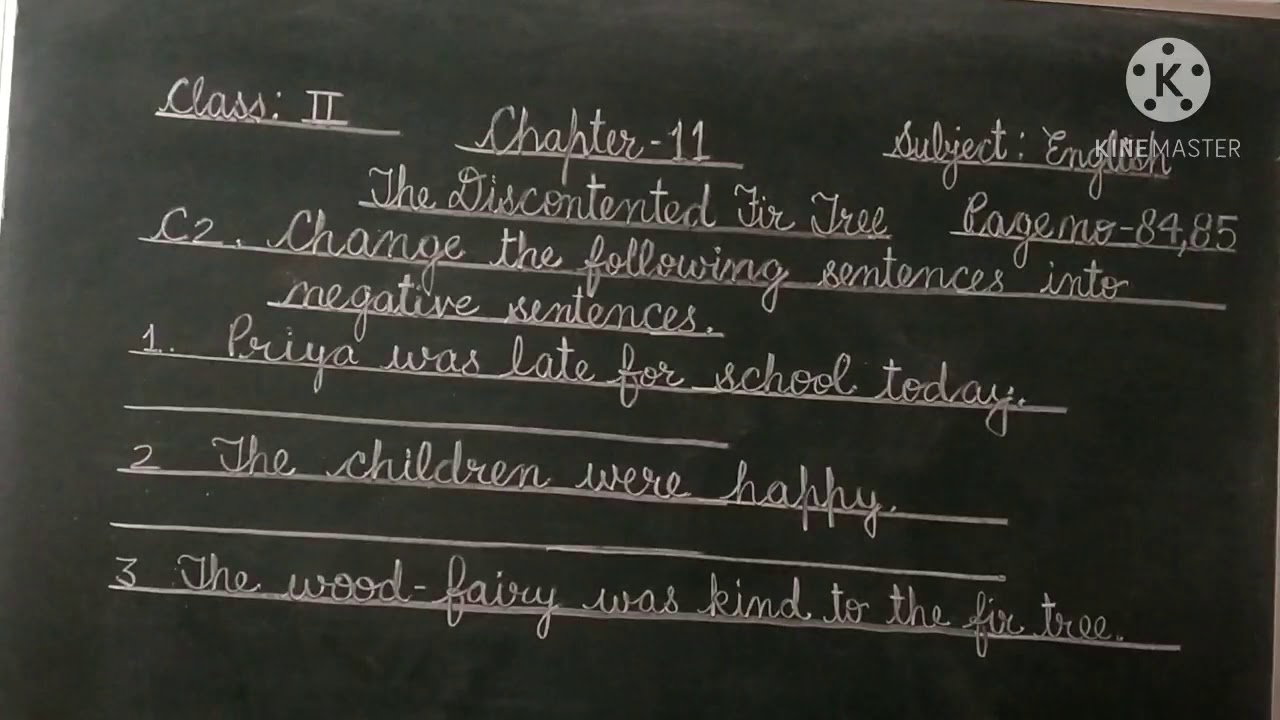 Class: II
Chapter-11
Subject: English
The Discontented Fir Tree
Page no-84,85
C2. Change the following sentences into
negative sentences.
1. Priya was late for school today.
2 The children were happy.
3 The wood-fairy was kind to the fir tree.
K
KINEMASTER